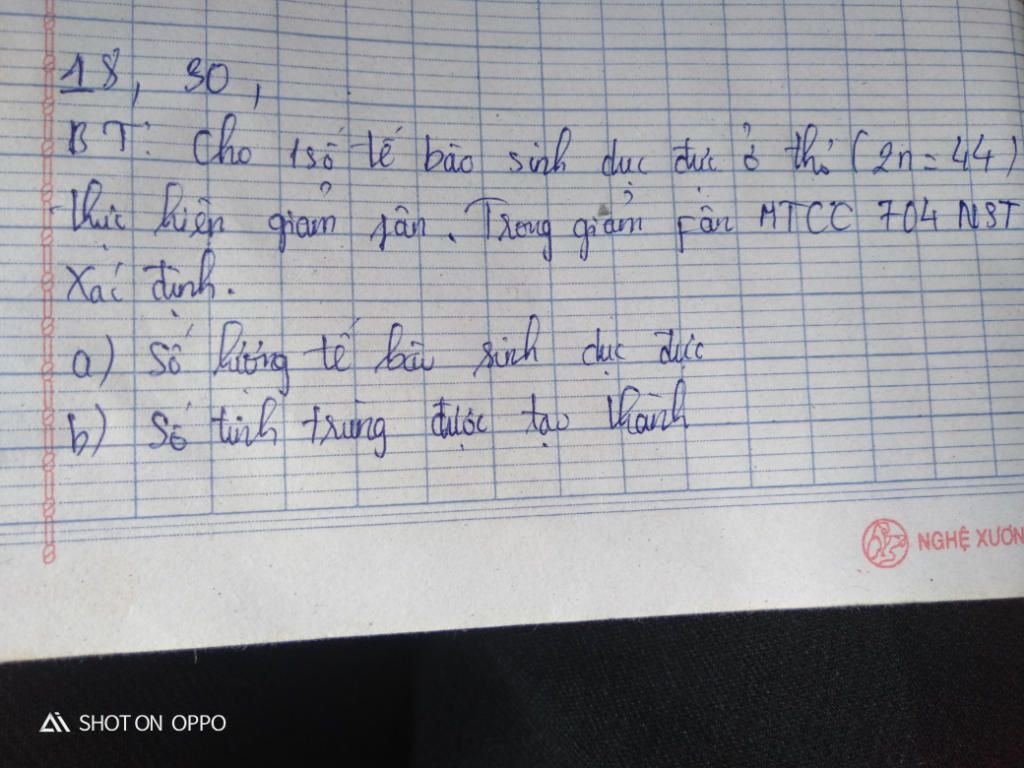 18, 30,
BT: Cho 1 số tế bào sinh dục đực ở thỏ (2n = 44)
thực hiện giảm phân. Trong giảm phân MTCC 704 NST
Xác định.
a) Số lượng tế bào sinh dục đực
b) Số tinh trùng được tạo thành
NGHỆ XƯƠN
SHOT ON OPPO